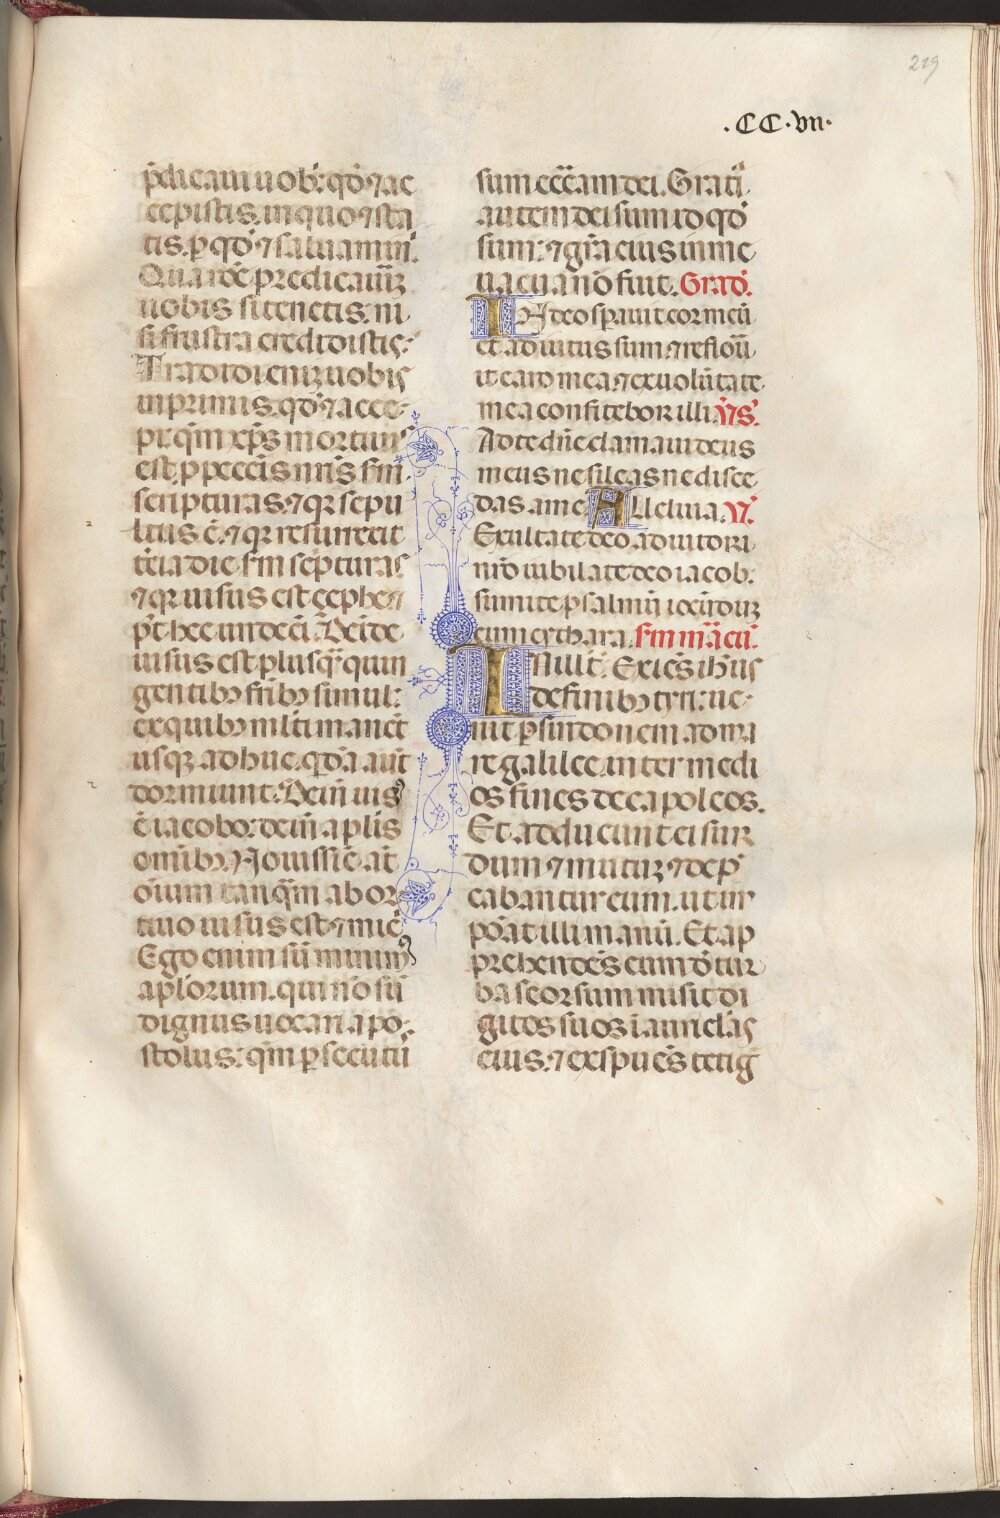 219
.CC.vii.
p̄dicaui uob̄: qd̄ ⁊ ac
cepistis. in quo ⁊ sta
tis. ꝑ qd̄ ⁊ saluamini.
Qua rōe predicauīꝫ
uobis si tenetis: ni
si frustra credidistis:
Tradidi eniꝫ uobis
inprimis. qd̄ ⁊ acce
pi: qm̄ xp̄s mortuus
est. ꝓ peccīs nr̄is sm̄
scripturas. ⁊ qꝛ sepu
ltus ē. ⁊ qꝛ resurrexit
tēia die sm̄ sc̄pturas
⁊ qꝛ uisus est cephe ⁊
p̄t hec undecī. Deīde
uisus est plusq̄ quin
gentibꝫ frībꝫ simul:
ex quibꝫ ml̄ti manēt
usqꝫ adhuc. qd̄ā aūt
dormiunt. Dein̄ uisꝰ
ē iacobo: dein̄ ap̄lis
omībꝫ. Nouissīe āt
oīum tanq̄m abor
tiuo uisus est ⁊ mic̄
Ego enim sū minimꝰ
ap̄lorum. qui nō sū
dignus uocari apo
stolus: qm̄ ꝑsecutū
sum ecc̄am dei. Grati
autem dei sum id qd̄
sum: ⁊ gr̄a eius in me
uacua nō fuit. Grad̄.
IN deo sꝑauit cor meū
et adiutus sum. ⁊ refloū
it caro mea. ⁊ ex uolūtate
mea confitebor illi. V̄s.
Ad te dn̄e clamaui deus
meus ne sileas ne disce
das a me. Alleluia. V̄.
Exultate deo adiutori
nr̄o iubilate deo iacob:
sumite psalmū iocūduꝫ
cum cythara. sm̄ marcū.
IN illīt. Exiēs ih̄us
de finibꝫ tyri: ue
nit ꝑ sindonem ad ma
re galilee. inter medi
os fines decapoleos.
Et adducunt ei sur
dum ⁊ mutuꝫ. ⁊ dep̄
cabantur eum. ut im
pōat illi manū. Et ap
prehendēs eum d̄ tur
ba seorsum misit di
gitos suos ī auriclās
eius. ⁊ exspuēs tetig